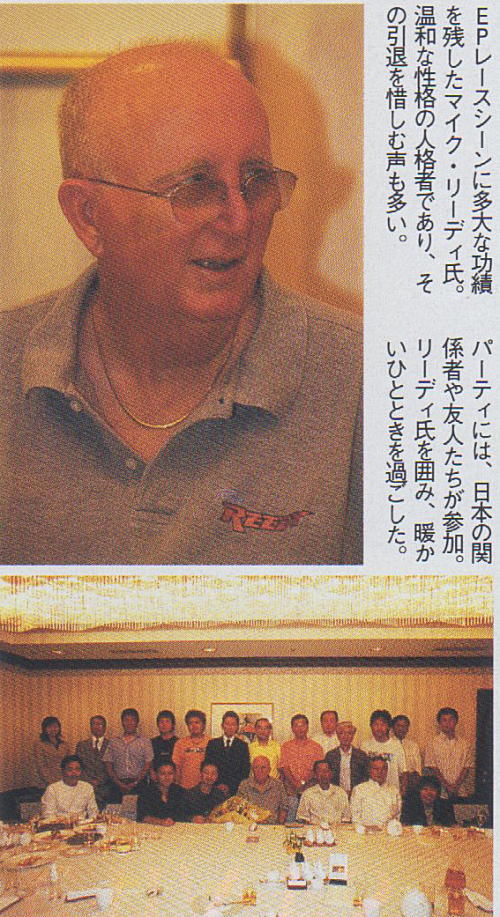 EPレースシーンに多大な功績
を残したマイク・リーディ氏。
温和な性格の人格者であり、そ
の引退を惜しむ声も多い。
パーティには、日本の関
係者や友人たちが参加。
リーディ氏を囲み、暖か
いひとときを過ごした。
REEDY